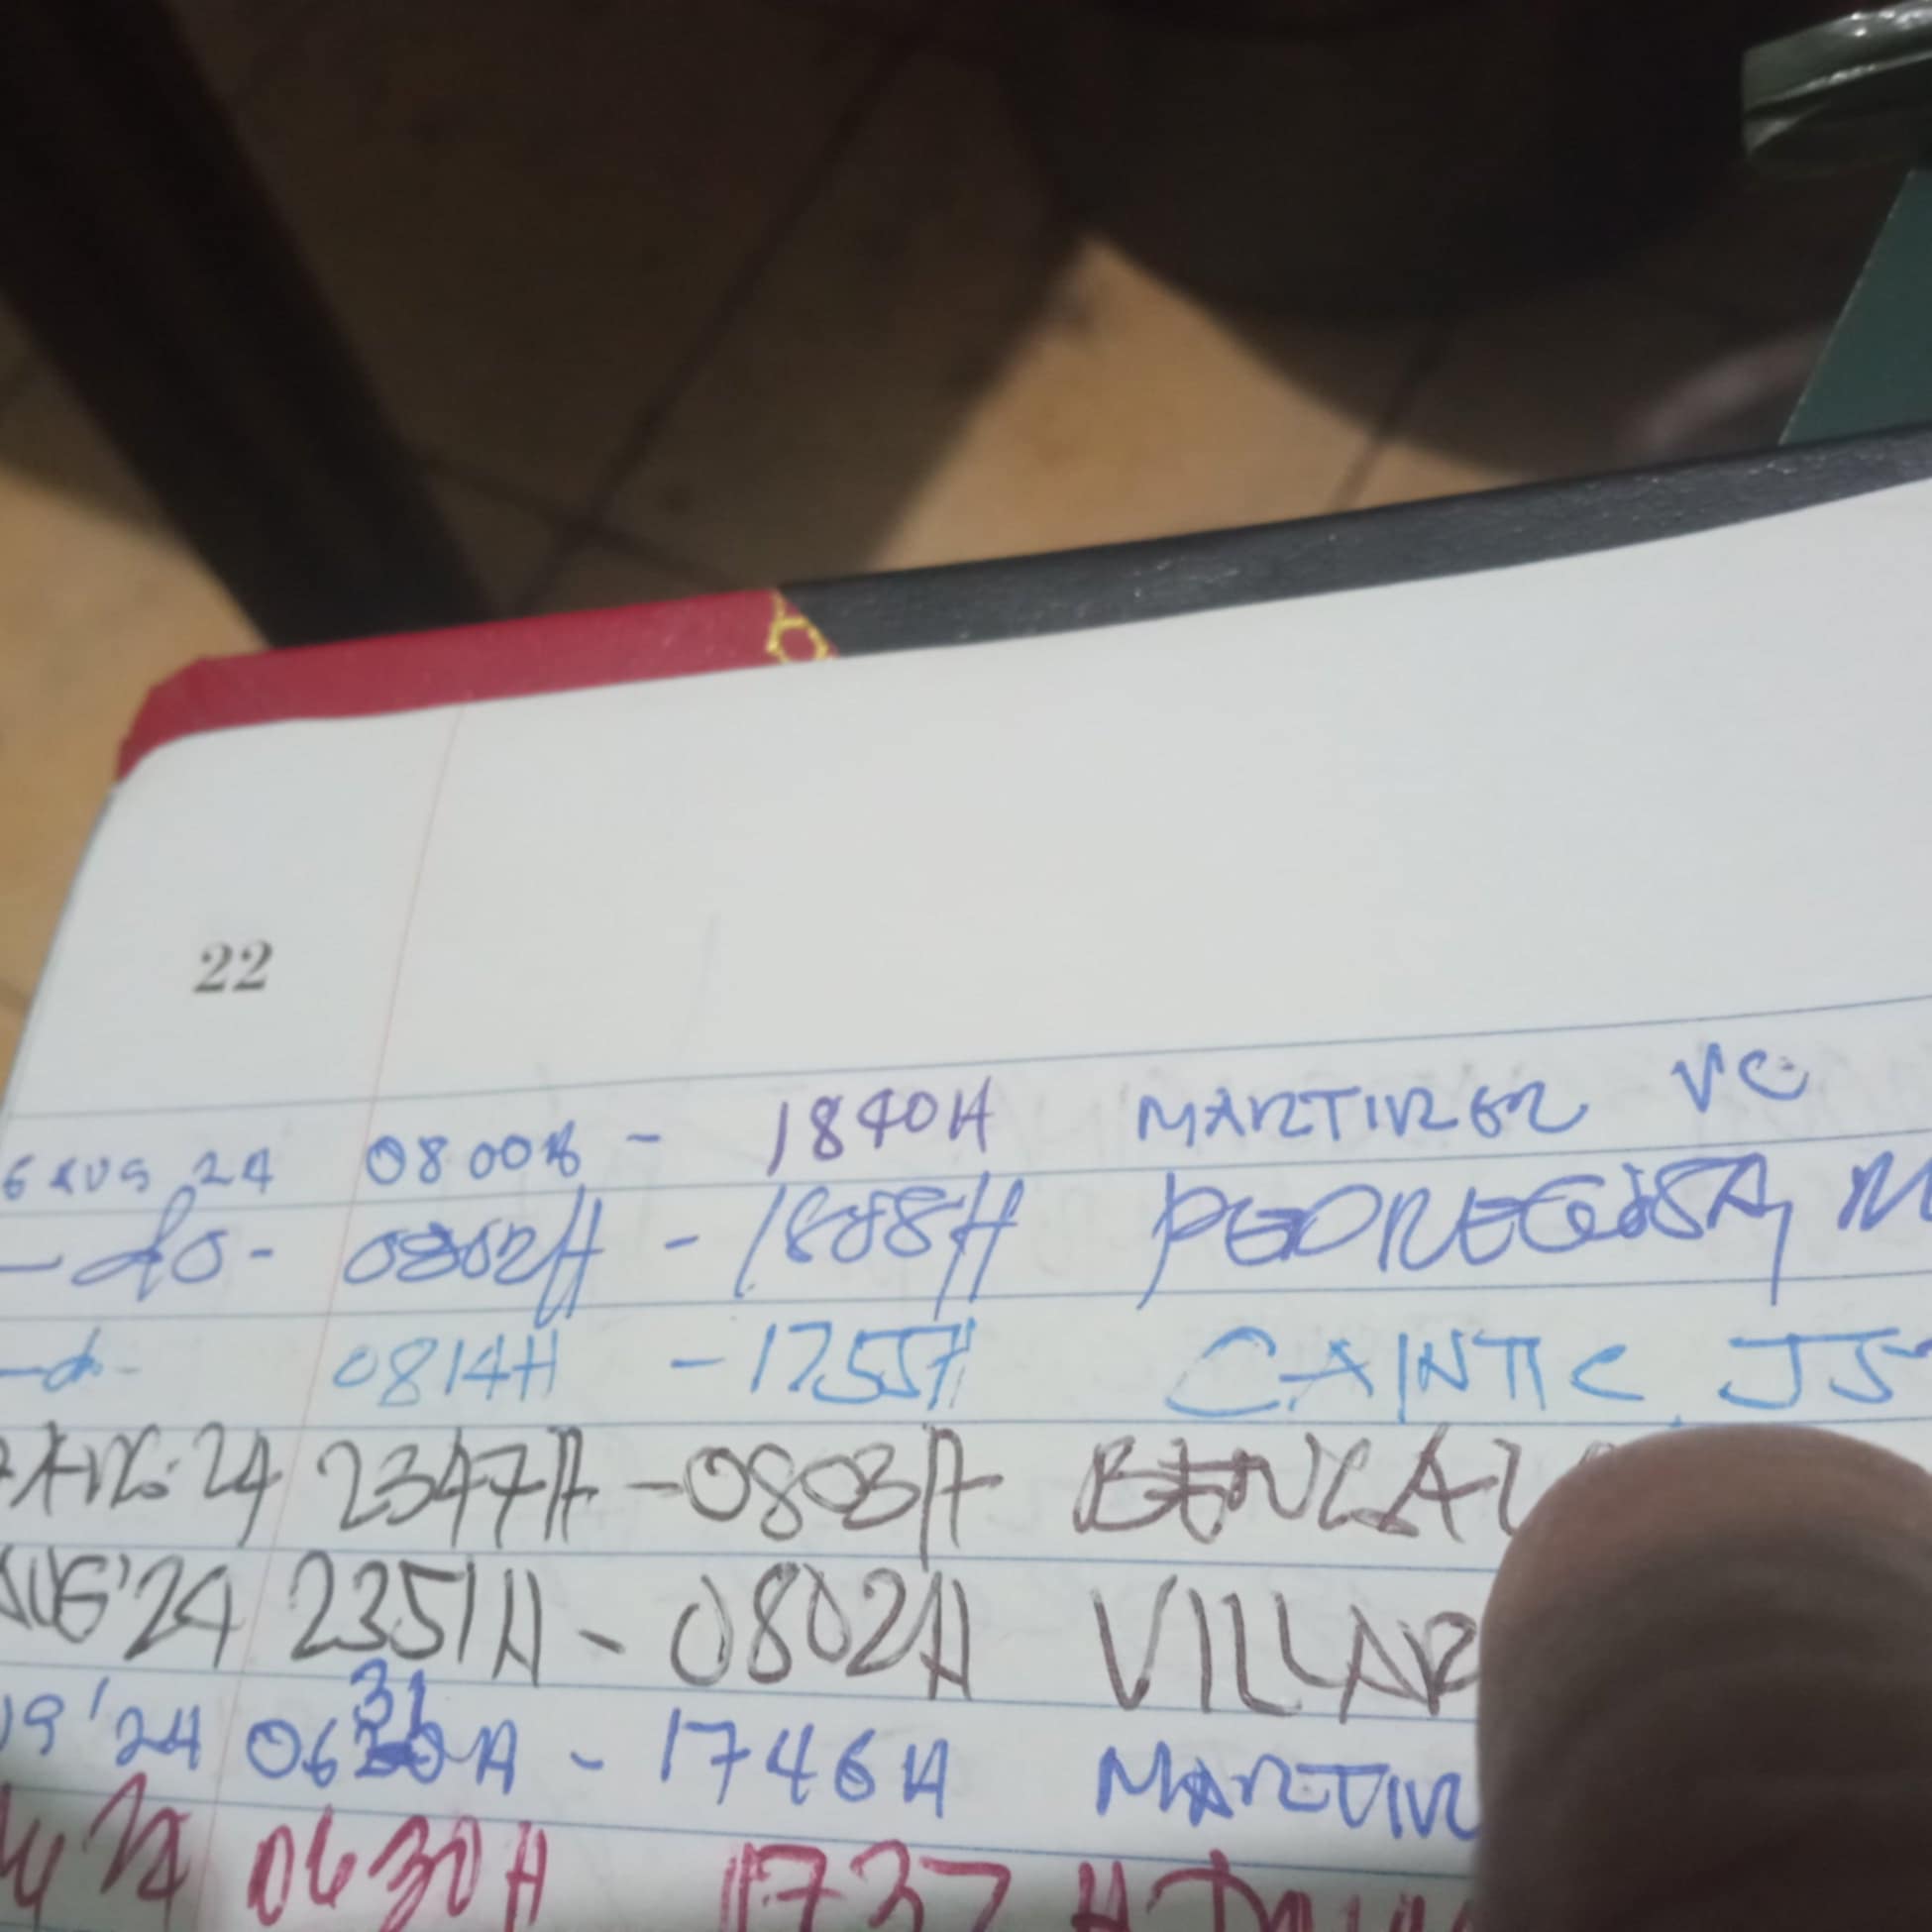 22
6 AUG 24 0800H - 1840H MARTIREZ VC
- do - 0802H - 1808H PEDREGOSA, M
- do - 0814H - 1755H CANTIC JS
AUG. 24 2347H - 0803H
AUG'24 2351H - 0802H VILLAR
'24 0631H - 1746H MARTIR
24 0630H 1737 H